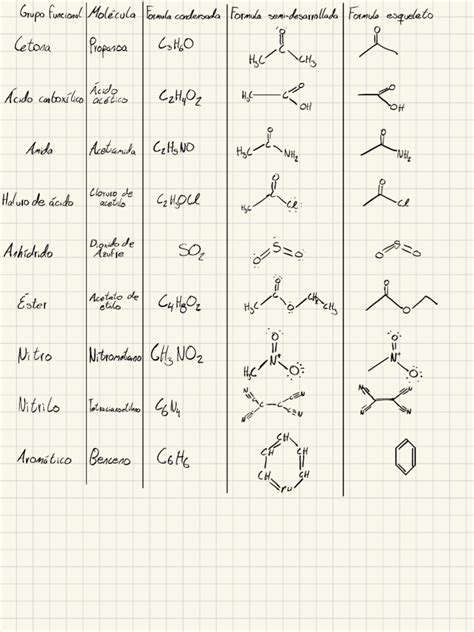 Grupo Funcional Molécula Formula condensada Formula semi-desarrollada Formula esqueleto
Cetona Propanoa C3H6O O H3C CH3 O
Ácido carboxílico Ácido acético C2H4O2 H3C C O OH O OH
Amida Acetamida C2H5NO H3C O NH2 O NH2
Haluro de ácido Cloruro de acetilo C2H3OCl O Cl O Cl
Anhídrido Dioxido de Azufre SO2 O S O O S O
Éster Acetato de etilo C4H8O2 H3C O O CH2 CH3 O O
Nitro Nitrometano CH3NO2 H3C N+ O O N+ O O
Nitrilo C6N4 N C C N N N N N N N
Aromático Benceno C6H6 CH CH CH CH CH